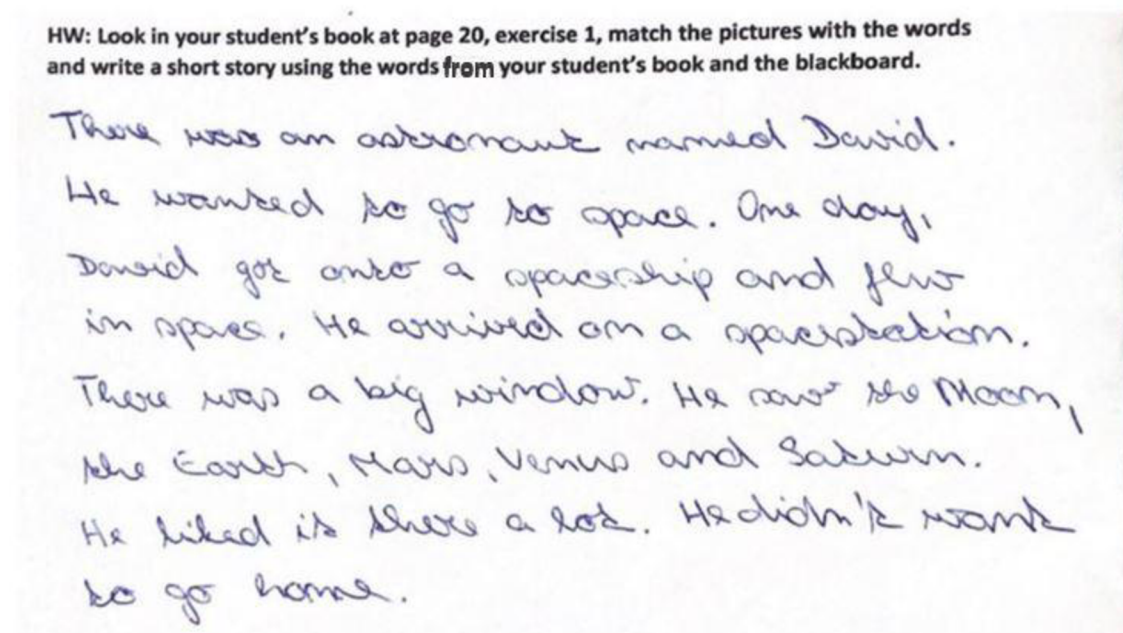 HW: Look in your student's book at page 20, exercise 1, match the pictures with the words
and write a short story using the words from your student's book and the blackboard.
There was an astronaut named David.
He wanted to go to space. One day,
David got onto a spaceship and flew
in space. He arrived on a spacestation.
There was a big window. He saw the Moon,
the Earth, Mars, Venus and Saturn.
He liked it there a lot. He didn't want
to go home.